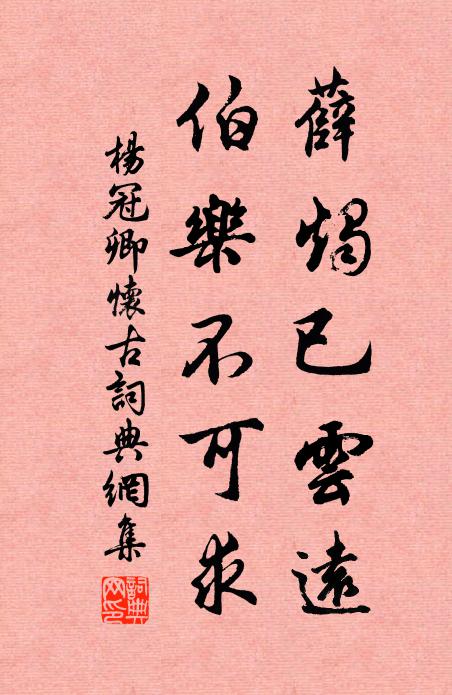 薛燭已雲遠
伯樂不可求
楊冠卿懷古詞典網集
詞典網印